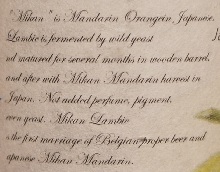 "Mikan" is Mandarin Orangein Japanese.
Lambic is fermented by wild yeast
nd matured for several months in wooden barrel,
and after with Mikan Mandarin harvest in
Japan. Not added perfume, pigment,
even yeast. Mikan Lambic
s the first marriage of Belgian proper beer and
apanese Mikan Mandarin.